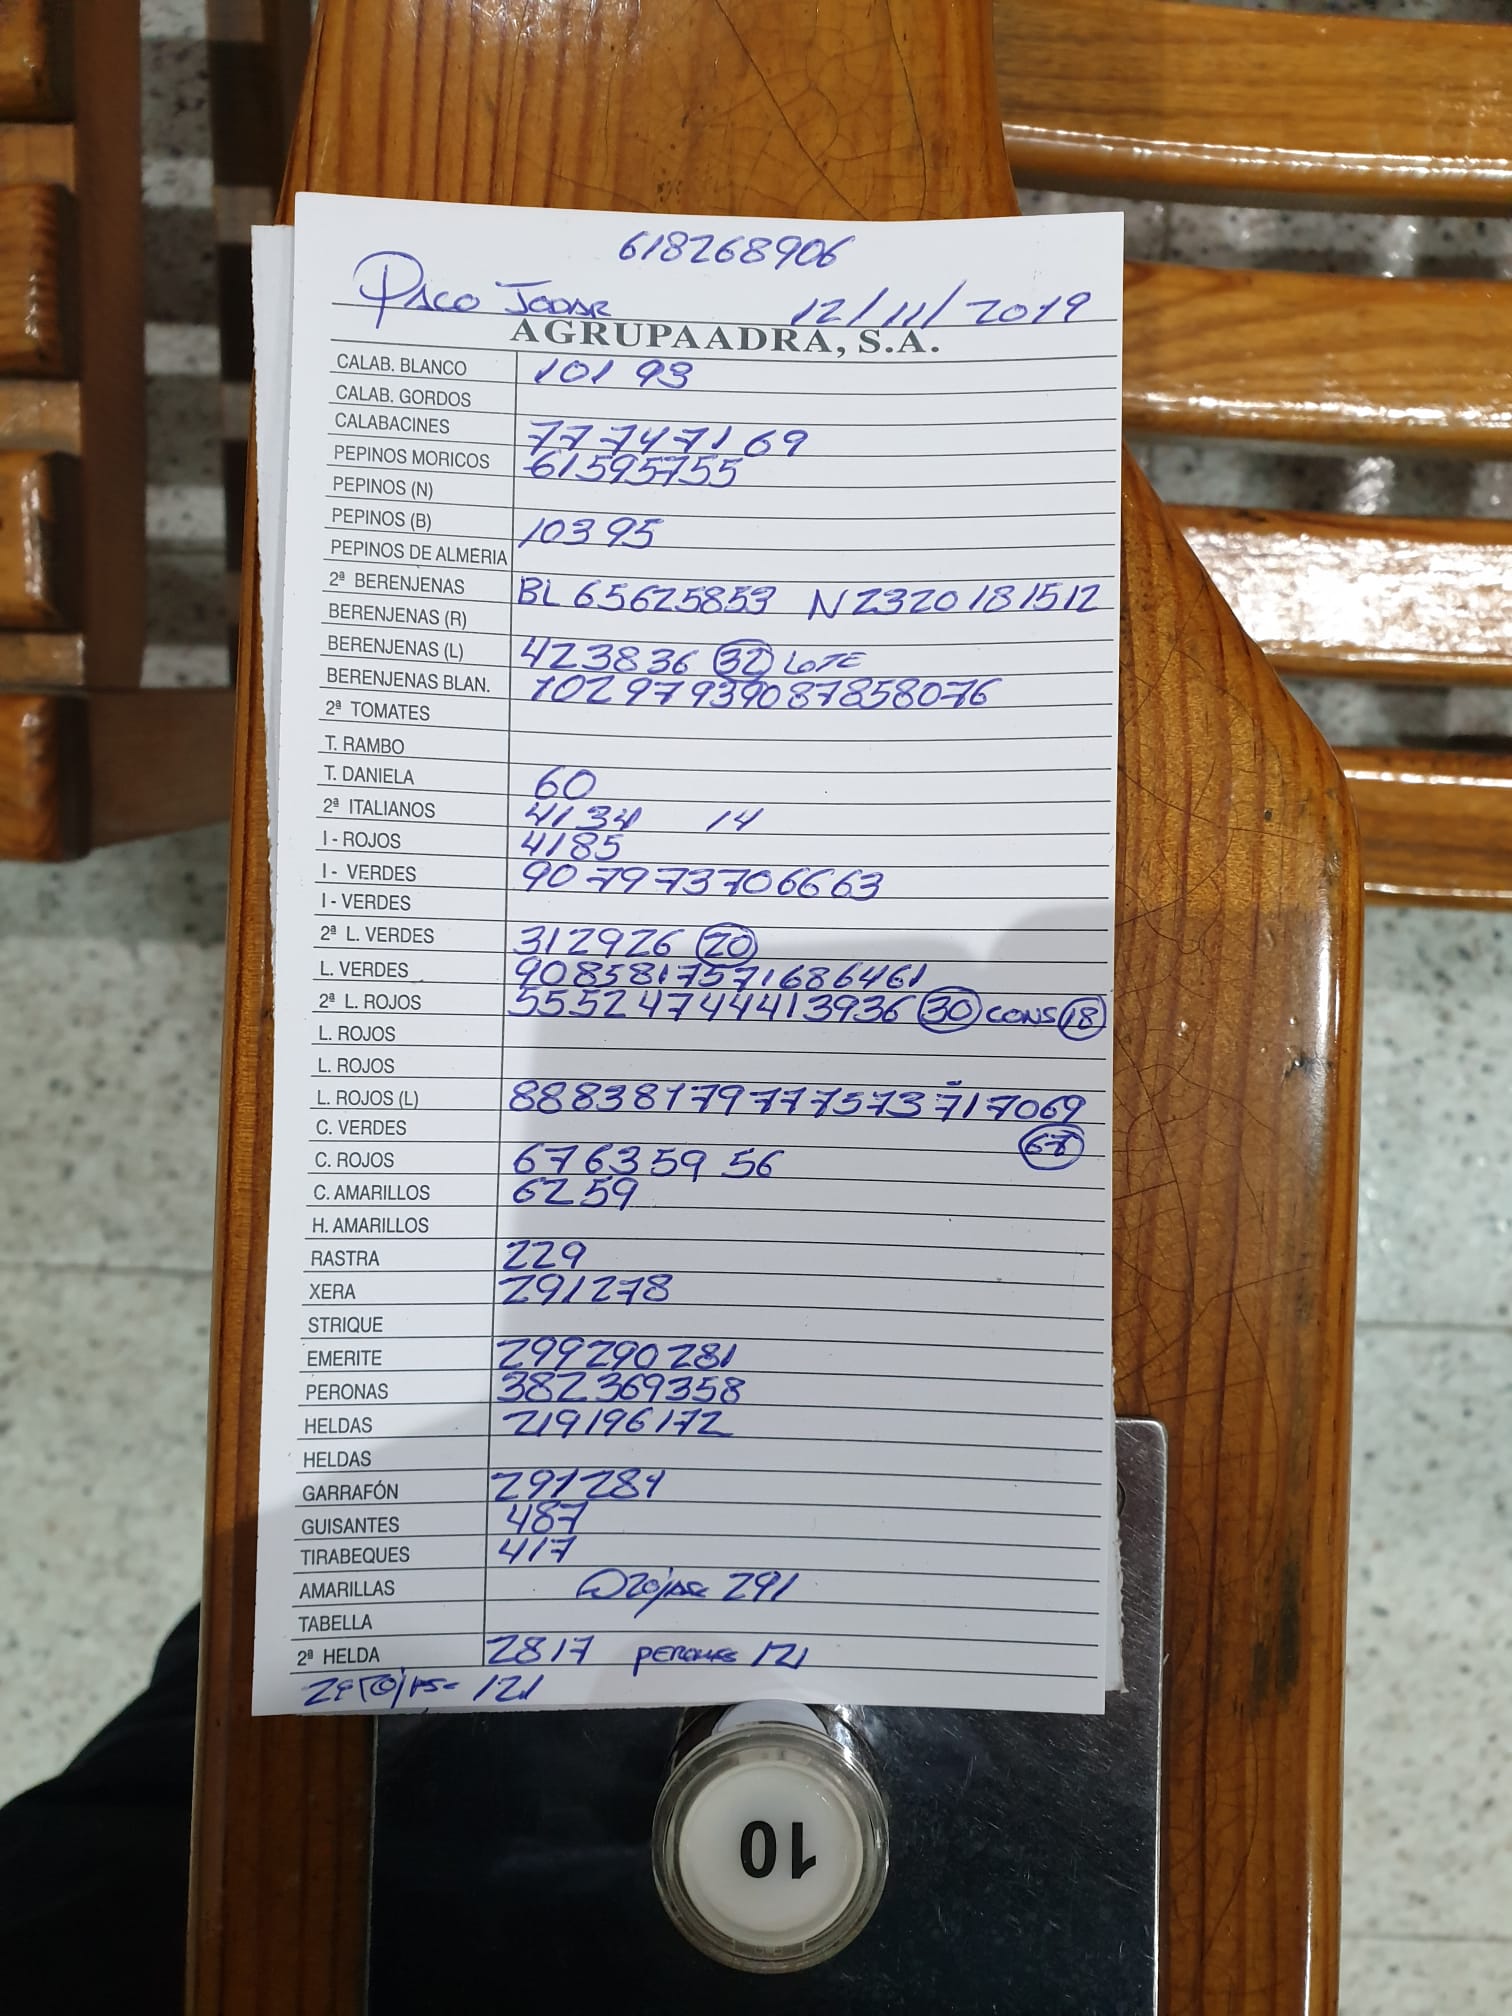 618268906
PACO JODAR 12/11/2019
AGRUPAADRA, S.A.
CALAB. BLANCO 101 93
CALAB. GORDOS
CALABACINES 77 7471 69
PEPINOS MORICOS 61595755
PEPINOS (N)
PEPINOS (B) 10395
PEPINOS DE ALMERIA
2ª BERENJENAS BL 65625853 N 2320181512
BERENJENAS (R)
BERENJENAS (L) 423836 32 LOTE
BERENJENAS BLAN. 1029793908785 8076
2ª TOMATES
T. RAMBO
T. DANIELA 60
2ª ITALIANOS 4134 14
I - ROJOS 4185
I - VERDES 907973706663
I - VERDES
2ª L. VERDES 312926 20
L. VERDES 9085817571686461
2ª L. ROJOS 555247444413936 30 CONS 18
L. ROJOS
L. ROJOS
L. ROJOS (L) 8883817977757371 7069
C. VERDES 67
C. ROJOS 676359 56
C. AMARILLOS 6259
H. AMARILLOS
RASTRA 229
XERA 291278
STRIQUE
EMERITE 299290281
PERONAS 382369358
HELDAS 219196172
HELDAS
GARRAFÓN 291284
GUISANTES 487
TIRABEQUES 417
AMARILLAS 291
TABELLA
2ª HELDA 2817 121
121
10